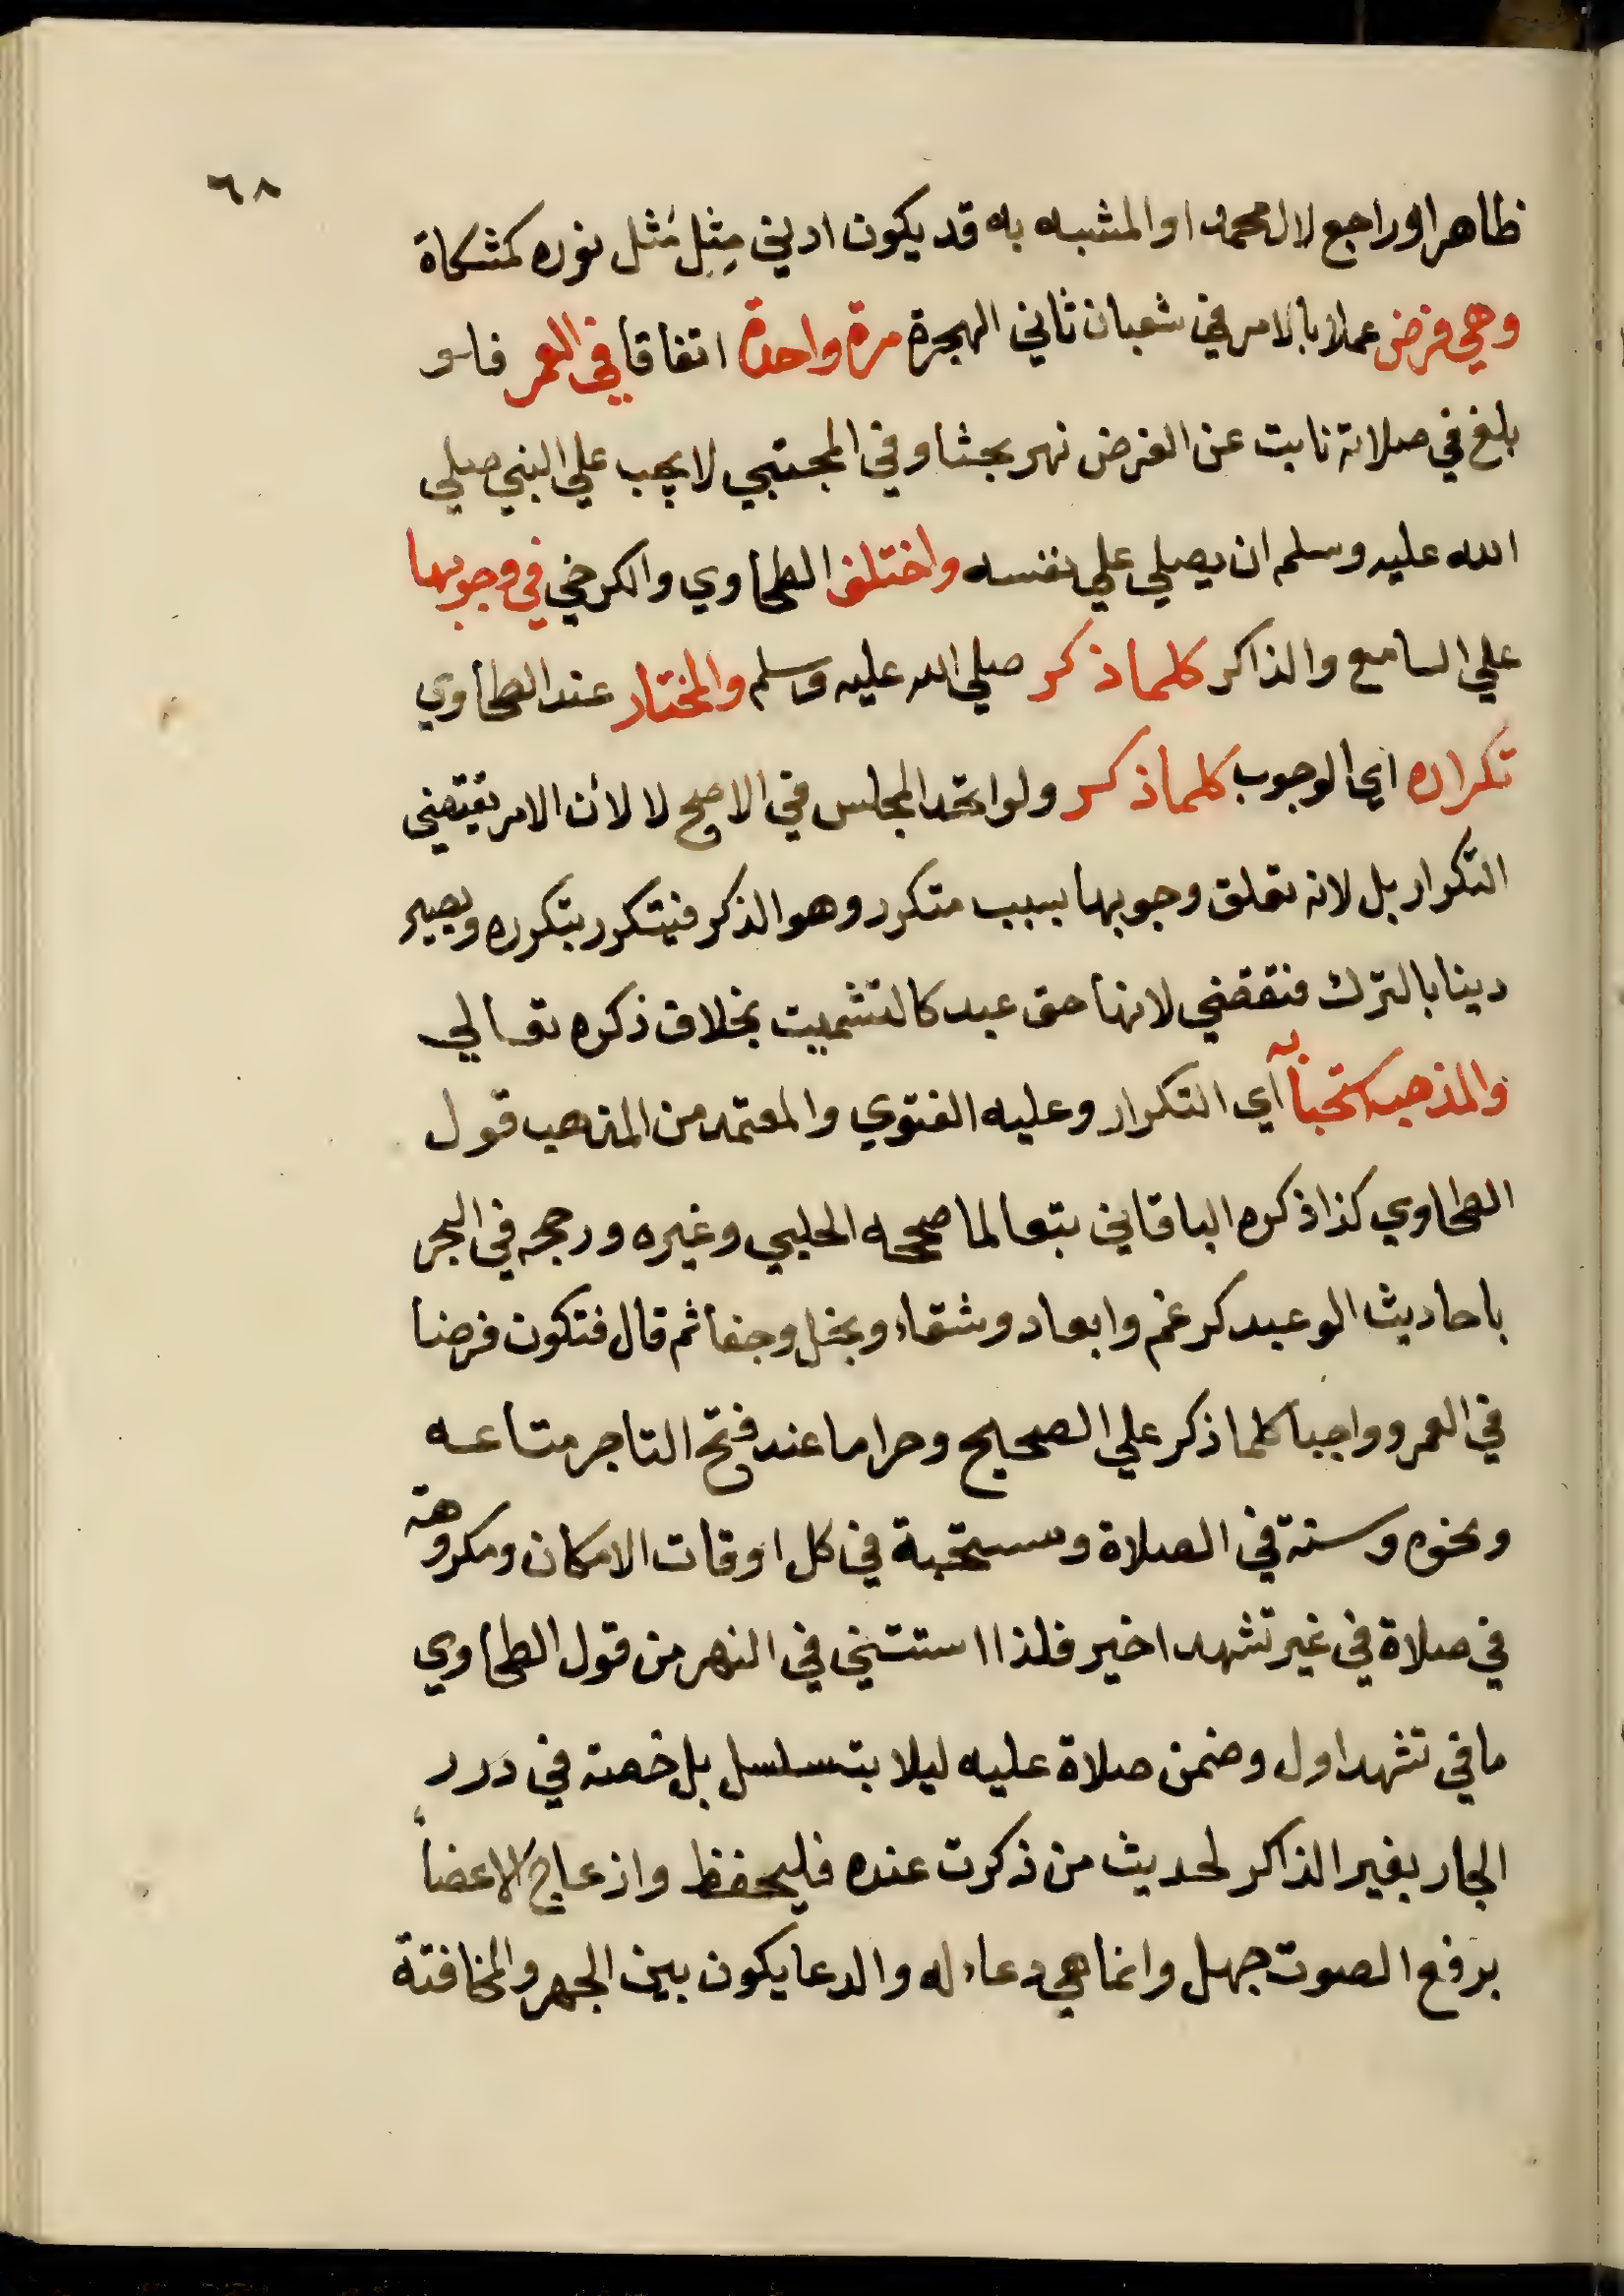 ٦٨
ظاهرا او راجع لال محمد او المشبه به قد يكون ادني مِثل مَثل نوره كمشكاة
وهي فرض عملا بالامر في شعبان ثاني الهجرة مرة واحدة اتفاقا في العمر فلو
بلغ في صلاته نابت عن الفرض نهر بحثا وفي المجتبي لا يجب علي النبي صلي
الله عليه وسلم ان يصلي علي نفسه واختلف الطحاوي والكرخي في وجوبها
علي السامع والذاكر كلما ذكر صلي الله عليه وسلم والمختار عند الطحاوي
تكراره اي الوجوب كلما ذكر ولو اتحد المجلس في الاصح لا لأن الامر يقتضي
التكرار بل لانه تعلق وجوبها بسبب متكرر وهو الذكر فيتكرر بتكرره ويصير
دينا بالترك فتقضي لانها حق عبد كالتشميت بخلاف ذكره تعالي
والمذهب استحبابه أي التكرار وعليه الفتوي والمعتمد من المذهب قول
الطحاوي كذا ذكره الباقاني تبعا لما صححه الحلبي وغيره ورجحه في البحر
باحاديث الوعيد كرغم وابعاد وشقاء وبخل وجفا ثم قال فتكون فرضا
في العمر وواجبا كلما ذكر علي الصحيح وحراما عند فتح التاجر متاعه
ونحوه وسنة في الصلاة ومستحبة في كل اوقات الامكان ومكروهة
في صلاة في غير تشهد اخير فلذا استثني في النهر من قول الطحاوي
ما في تشهد اول وضمن صلاة عليه ليلا يتسلسل بل خصه في درر
البحار بغير الذاكر لحديث من ذكرت عنده فليحفظ وازعاج الاعضاء
برفع الصوت جهل وانما هي دعاء له والدعا يكون بين الجهر والمخافتة